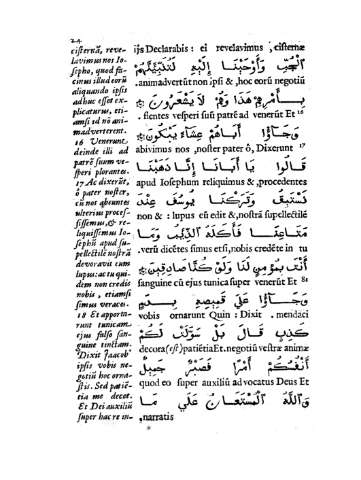 24
cisternā, reve-
lavimus nos Io-
sepho, quod fa-
cinus illud eorū
aliquando ipsis
adhuc esset ex-
plicaturus, eti-
amsi id nō ani-
madverterent.
16 Venerunt
deinde illi ad
patrē suum ve-
speri plorantes.
17 Ac dixerūt,
ô pater noster,
cū nos abeuntes
ulterius proces-
sissemus, & re-
liquissemus Io-
sephū apud su-
pellectilē nostrā
devoravit eum
lupus: ac tu qui-
dem non credis
nobis, etiamsi
simus veraces.
18 Et apporta-
runt tunicam
ejus falso san-
guine tinctam.
Dixit Jacob'
ipsis vobis ne-
gotiū hoc orna-
stis. Sed patiē-
tia me decet.
Et Dei auxiliū
super hac re in-
ijs Declarabis : ei revelavimus , cisternæ
الْجُبِّ وَأَوْحَيْنَا إِلَيْهِ لَتُنَبِّئَنَّهُمْ
.animadvertūt non ipsi & , hoc eorū negotiū
بِأَمْرِهِمْ هَذَا وَهُمْ لَا يَشْعُرُونَ
.flentes vesperi sui patrē ad venerūt Et 16
وَجَاؤُا أَبَاهُمْ عِشَاءً يَبْكُونَ
abivimus nos , noster pater ô , Dixerunt 17
قَالُوا يَا أَبَانَا إِنَّا ذَهَبْنَا
apud Iosephum reliquimus & , procedentes
نَسْتَبِقُ وَتَرَكْنَا يُوسُفَ عِنْدَ
non & : lupus eū edit & , nostrā supellectilē
مَتَاعِنَا فَأَكَلَهُ الذِّئْبُ وَمَا
.verū dicētes simus etsi , nobis credēte in tu
أَنْتَ بِمُؤْمِنٍ لَنَا وَلَوْ كُنَّا صَادِقِينَ
sanguine cū ejus tunica super venerūt Et 81
وَجَاؤُا عَلَى قَمِيصِهِ بِدَمٍ
vobis ornarunt Quin : Dixit . mendaci
كَذِبٍ قَالَ بَلْ سَوَّلَتْ لَكُمْ
decora (est) patiētia Et . negotiū vestræ animæ
أَنْفُسُكُمْ أَمْرًا فَصَبْرٌ جَمِيلٌ
quod eo super auxiliū advocatus Deus Et
وَاللَّهُ الْمُسْتَعَانُ عَلَى مَا
,narratis